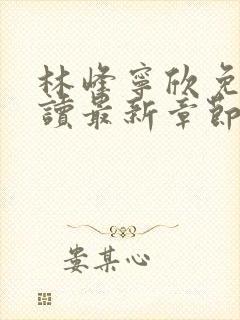 林峰寧欣免
讀最新章節
娄某心